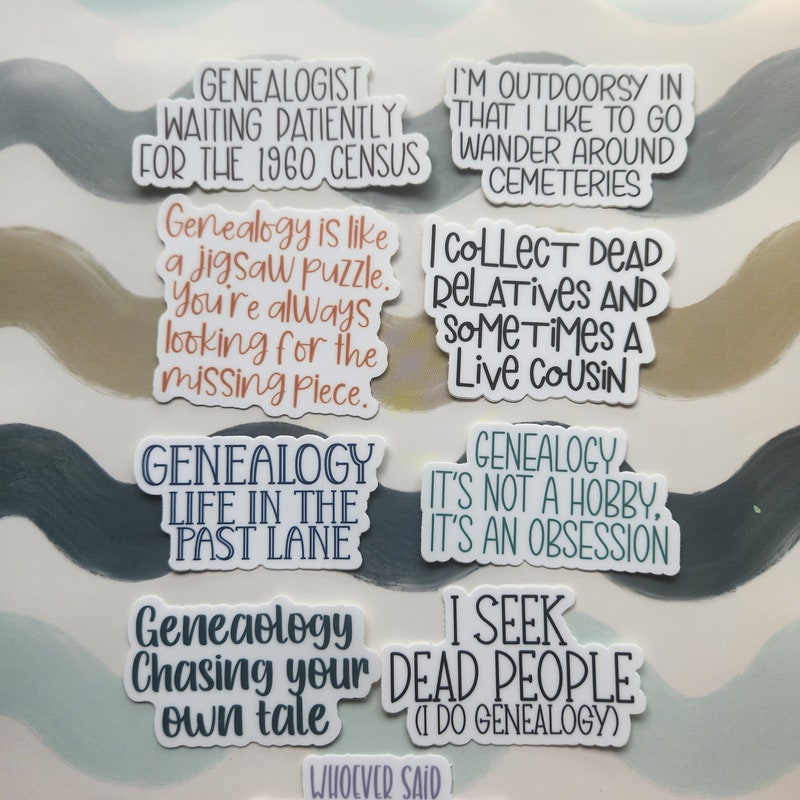 GENEALOGIST
WAITING PATIENTLY
FOR THE 1960 CENSUS
I'M OUTDOORSY IN
THAT I LIKE TO GO
WANDER AROUND
CEMETERIES
Genealogy is like
a jigsaw puzzle.
You're always
looking for the
missing piece.
I COLLECT DEAD
RELATIVES AND
SOMETIMES A
LIVE COUSIN
GENEALOGY
LIFE IN THE
PAST LANE
GENEALOGY
IT'S NOT A HOBBY,
IT'S AN OBSESSION
Geneaology
Chasing your
own tale
I SEEK
DEAD PEOPLE
(I DO GENEALOGY)
WHOEVER SAID